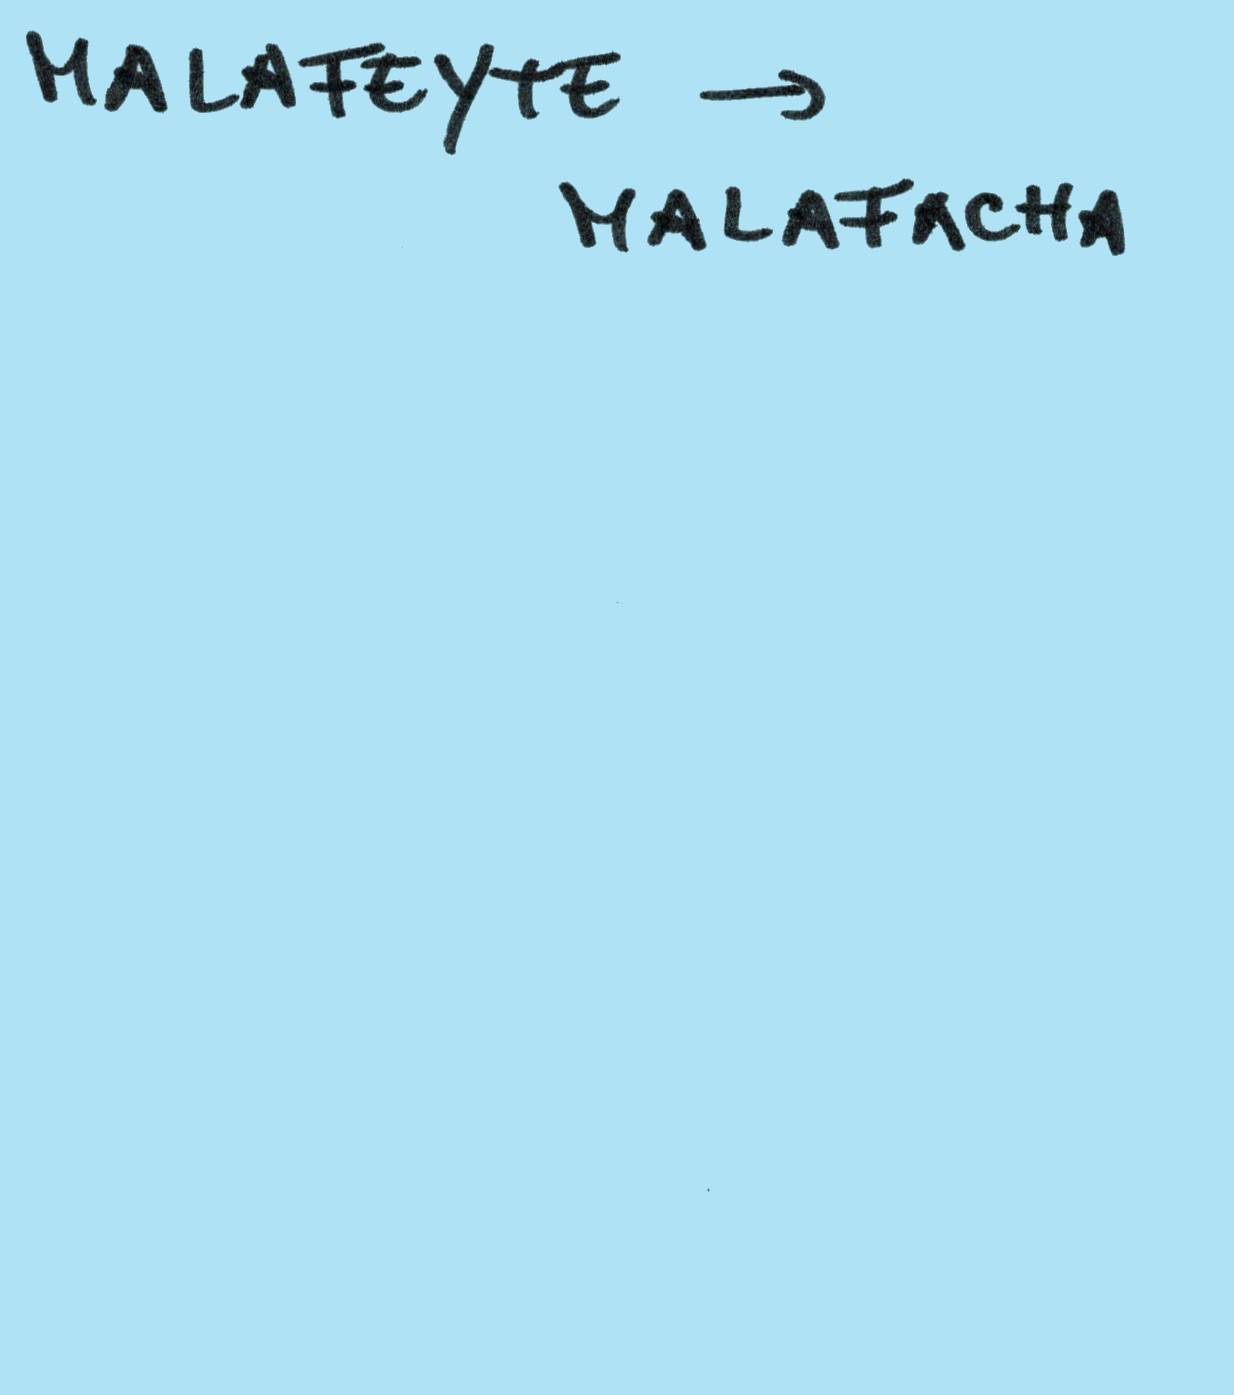 MALAFEYTE →
MALAFACHA